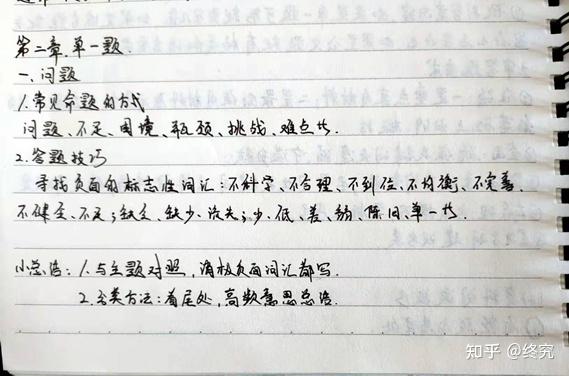 第二章.单一题.
一、问题
1.常见命题的方式
问题、不足、困境、瓶颈、挑战、难点书.
2.答题技巧
寻找负面的标志性词汇:不科学、不合理、不到位、不均衡、不完善
不健全、不足;缺乏、缺少、流失;少、低、差、弱、陈旧、单一书.
小总结:1.与主题对照,消极负面词汇都写.
2.分类方法:首尾处,高频意思总结.
知乎 @终究